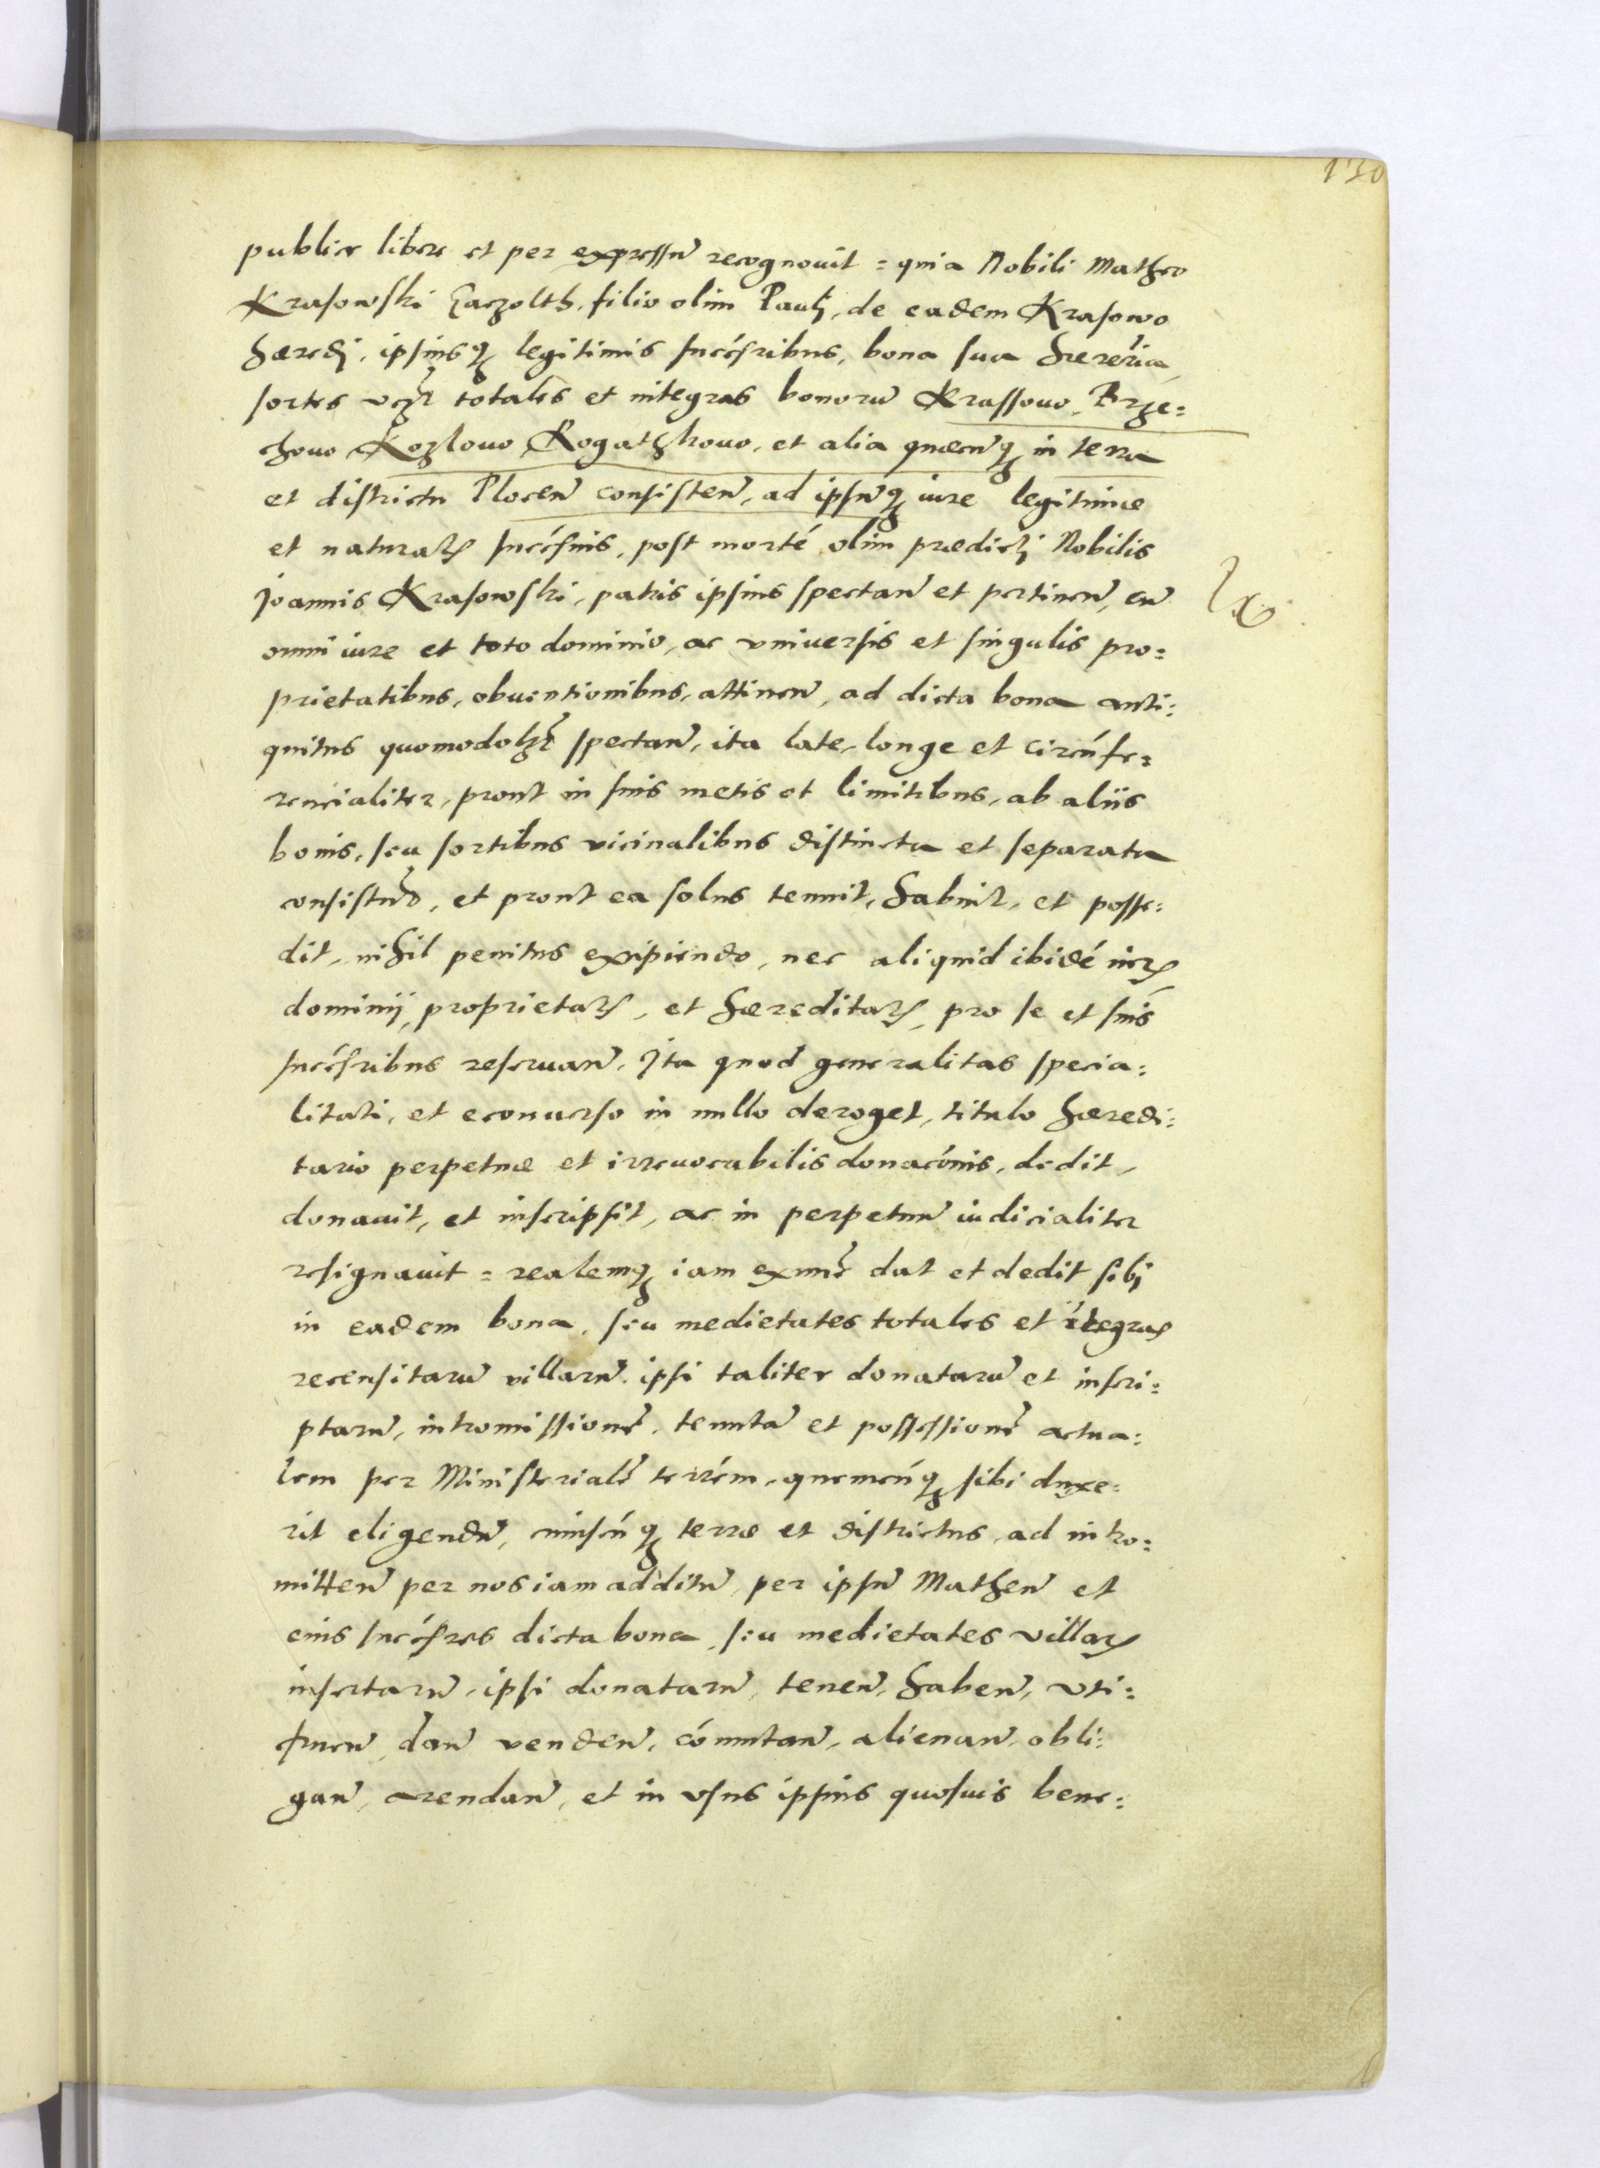 130
publice libere et per expressũ recognouit = quia Nobili Matheo
Krasowski filio olim Pauli, de eadem Krasowo
hæredi, ipsiusq₃ legitimis succ̃soribus, bona sua hæreditaria
sortes vcz̃ totales et integras bonorũ Krassouo, Brze=
chouo Kozlouo Rogatzkouo, et alia quæcũq₃ in terra
et districtu Plocen̄ consisten̄, ad ipsũq₃ iure legitimæ
et naturalis succ̃sionis, post mortẽ olim prædicti Nobilis
Joannis Krasowski, patris ipsius spectan̄ et pertinen̄, cũ
omni iure et toto dominio, ac vniuersis et singulis pro=
prietatibus, obuentionibus, attinen̄, ad dicta bona anti=
quitus quomodolz̃ spectan̄, ita late, longe et circũfe=
rencialiter, prout in suis metis et limitibus, ab aliis
bonis, seu sortibus vicinalibus distincta et separata
consistun̄t, et prout ea solus tenuit, habuit, et posse=
dit, nihil penitus excipiendo, nec aliquid ibidẽ iuris
dominij, proprietatis, et hæreditatis, pro se et suis
succ̃soribus reseruan̄. Ita quod generalitas specia=
litati, et econuerso in nullo deroget, titulo hæredi=
tario perpetuæ et irreuocabilis donac̃onis, dedit,
donauit, et inscripsit, ac in perpetuũ iudicialiter
resignauit = realemq₃ iam exnũc dat et dedit sibi
in eadem bona, seu medietates totales et ĩtegras
recensitarũ villarũ ipsi taliter donatarũ et inscri=
ptarũ, intromissionẽ, tenutã et possessionẽ actua=
lem per Ministerialẽ terrẽm, quemcũq₃ sibi duxe=
rit eligendũ, cuiuscũq₃ terræ et districtus, ad intro=
mitten̄ per nos iam additũ, per ipsũ Matheũ et
eius succ̃sores dicta bona, seu medietates villarum
insertarũ, ipsi donatarũ, tenen̄, haben̄, vti=
fruen̄ dan̄ venden̄, cõmutan̄, alienan̄, obli=
gan̄, arendan̄, et in vsus ipsius quosuis bene=